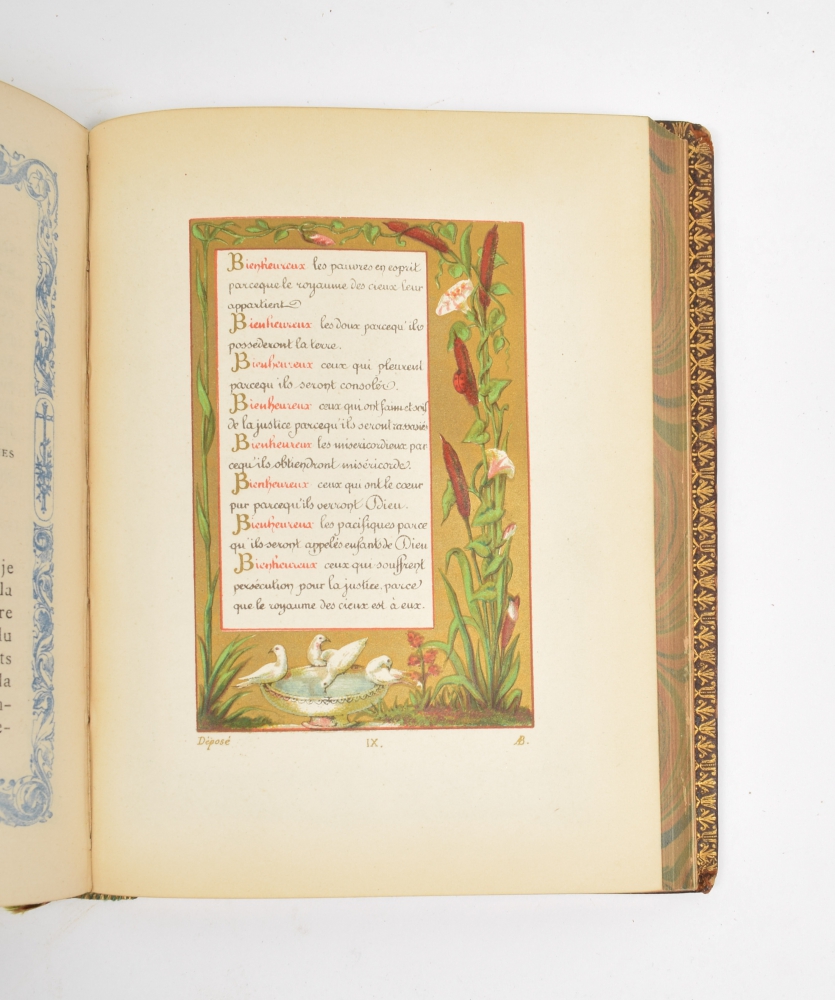 ES
je
la
re
du
ts
la
n-
e-
Bienheureux les pauvres en esprit
parceque le royaume des cieux leur
appartient
Bienheureux les doux parcequ'ils
possederont la terre.
Bienheureux ceux qui pleurent
parcequ'ils seront consolés.
Bienheureux ceux qui ont faim et soif
de la justice parcequ'ils seront rassasiés
Bienheureux les misericordieux par
cequ'ils obtiendront miséricorde.
Bienheureux ceux qui ont le cœur
pur parcequ'ils verront Dieu.
Bienheureux les pacifiques parce
qu'ils seront appelés enfants de Dieu
Bienheureux ceux qui souffrent
persécution pour la justice, parce
que le royaume des cieux est à eux.
Déposé IX. AB.